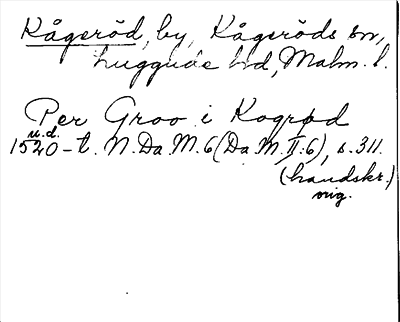 Kågeröd, by, Kågeröds sn,
Luggude hd, Malm. l.
Per Groo i Kogrød
u.d.
1520-t. N. Da. M. 6 (Da. M. II:6), s. 311.
(handskr.)
orig.